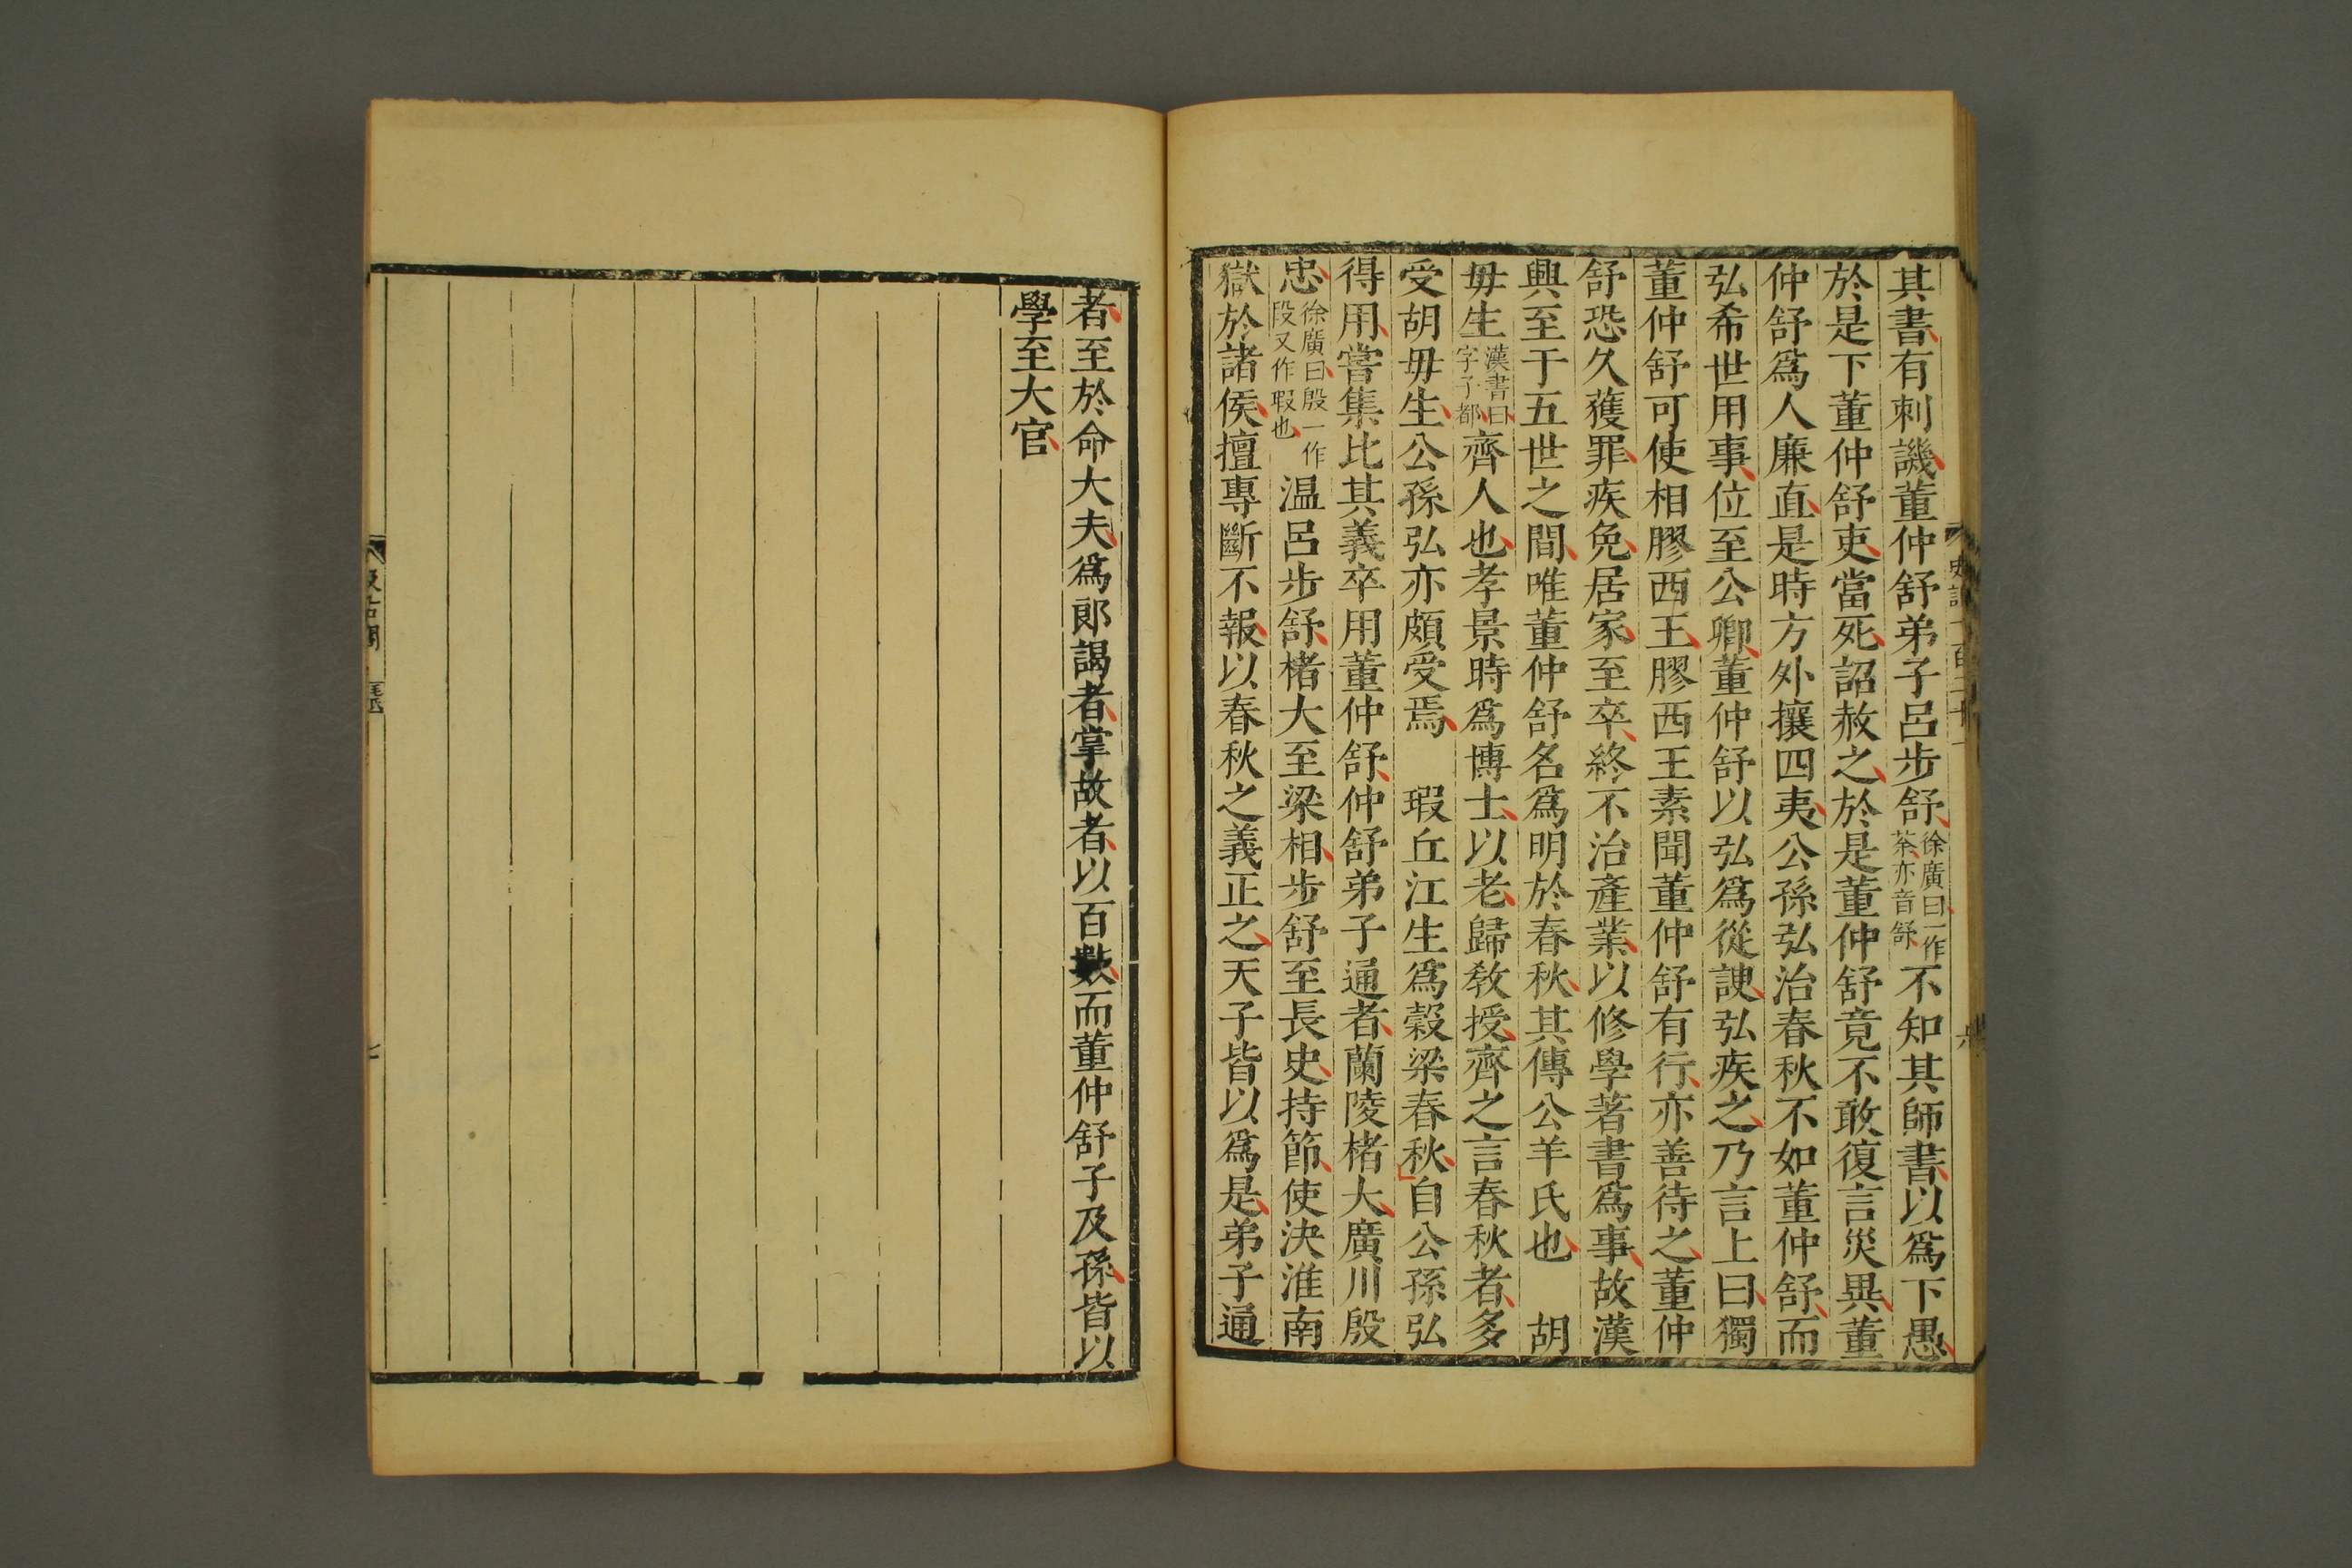 其書有刺譏董仲舒弟子呂步舒徐廣曰一作荼亦音舒不知其師書以爲下愚
於是下董仲舒吏當死詔赦之於是董仲舒竟不敢復言災異董
仲舒爲人廉直是時方外攘四夷公孫弘治春秋不如董仲舒而
弘希世用事位至公卿董仲舒以弘爲從諛弘疾之乃言上曰獨
董仲舒可使相膠西王膠西王素聞董仲舒有行亦善待之董仲
舒恐久獲罪疾免居家至卒終不治產業以修學著書爲事故漢
興至于五世之間唯董仲舒名爲明於春秋其傳公羊氏也　胡
毋生漢書曰字子都齊人也孝景時爲博士以老歸敎授齊之言春秋者多
受胡毋生公孫弘亦頗受焉　瑕丘江生爲穀梁春秋自公孫弘
得用嘗集比其義卒用董仲舒仲舒弟子通者蘭陵楮大廣川殷
忠徐廣曰殷一作段又作瑕也温呂步舒楮大至梁相步舒至長史持節使決淮南
獄於諸侯擅專斷不報以春秋之義正之天子皆以爲是弟子通
者至於命大夫爲郎謁者掌故者以百數而董仲舒子及孫皆以
學至大官